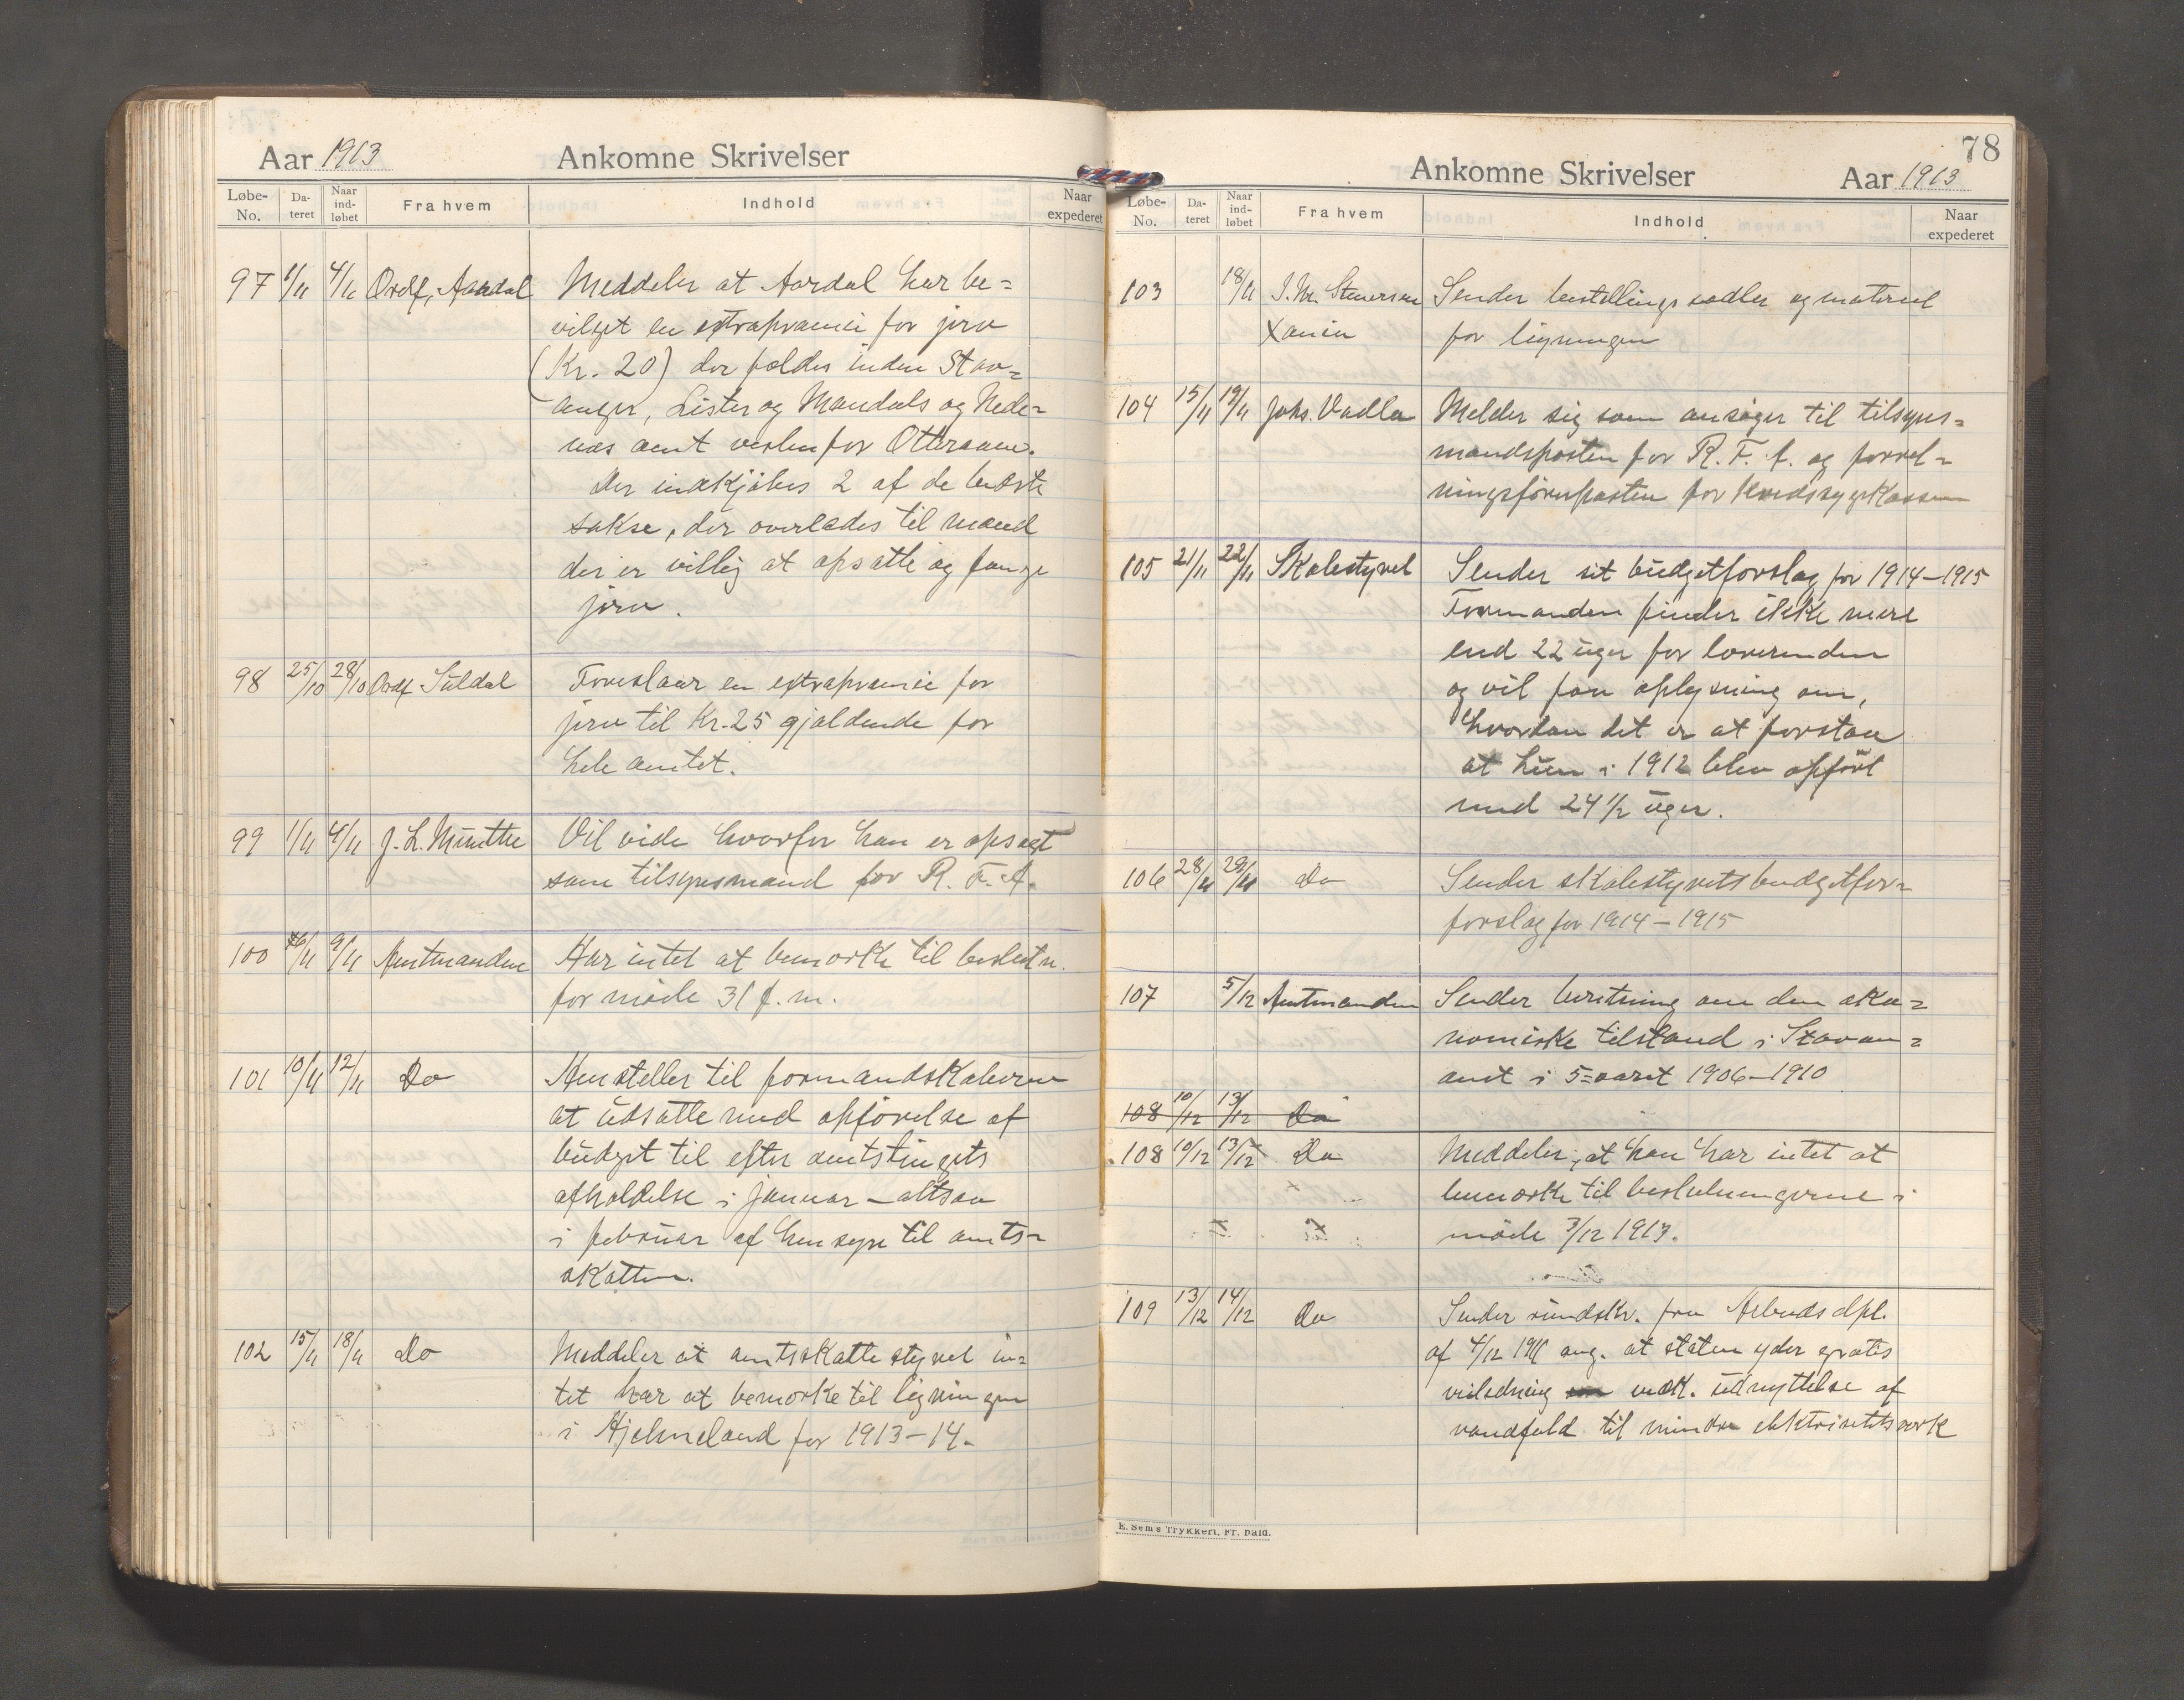 Aar 1913 Ankomne Skrivelser
Løbe-No. Dateret Naar indløbet Fra hvem Indhold Naar expederet
97 1/11 4/11 Ordf. Aardal Meddeler at Aardal har be=
vilget en extrapræmie for jerv
(Kr. 20) der fældes inden Stav=
anger, Lister og Mandals og Nede=
næs amt vesten for Otteraaen.
Der indkjøbes 2 af de bedste
sakse, der overlades til mænd
der er villig at opsætte og fange
jerv.
98 25/10 28/10 Ordf. Suldal Foreslaar en extrapræmie for
jerv til Kr. 25 gjældende for
hele amtet.
99 1/11 4/11 J. L. Münthe Vil vide hvorfor han er opsagt
som tilsynsmand for R. F. A.
100 6/11 9/11 Amtmanden Har intet at bemærke til beslutn.
for møde 31 f. m.
101 10/11 12/11 Do Henstiller til formandskaberne
at udsætte med opførelse af
budget til efter amtstingets
afholdelse i januar – altsaa
i februar af hensyn til amts=
skatten.
102 15/11 18/11 Do Meddeler at amtsskattestyret in=
tet har at bemærke til ligningen
i Hjelmeland for 1913–14.
78
Ankomne Skrivelser Aar 1913
Løbe-No. Dateret Naar indløbet Fra hvem Indhold Naar expederet
103 18/11 Sender bestillingssedler og materiel
for ligningen
104 15/11 19/11 Johs. Vadla Melder sig som ansøger til tilsyns=
mandsposten for R. F. A. og forret=
ningsførerposten for Kredssygekassen
105 21/11 22/11 Skolestyret Sender sit budgetforslag for 1914–1915
Formanden finder ikke mere
end 22 uger for lærerinden
og vil faa oplysning om,
hvordan det er at forstaa
at hun i 1912 blev opført
med 24 1/2 uger.
106 28/11 29/11 Do Sender skolestyrets budgetfor=
forslag for 1914–1915
107 5/12 Amtmanden Sender beretning om den øko=
nomiske tilstand i Stavan=
amt i 5=aaret 1906–1910
108 10/12 13/12 Do
108 10/12 13/12 Do Meddeler, at han har intet at
bemærke til beslutningerne i
møde 3/12 1913.
109 13/12 14/12 Do Sender rundskr. fra Arbeidsdpt.
af 4/12 ang. at staten yder gratis
veiledning vedk. udnyttelse af
vandfald til mindre elektricitetsverk
E. Sem's Trykkeri, Fr. hald.